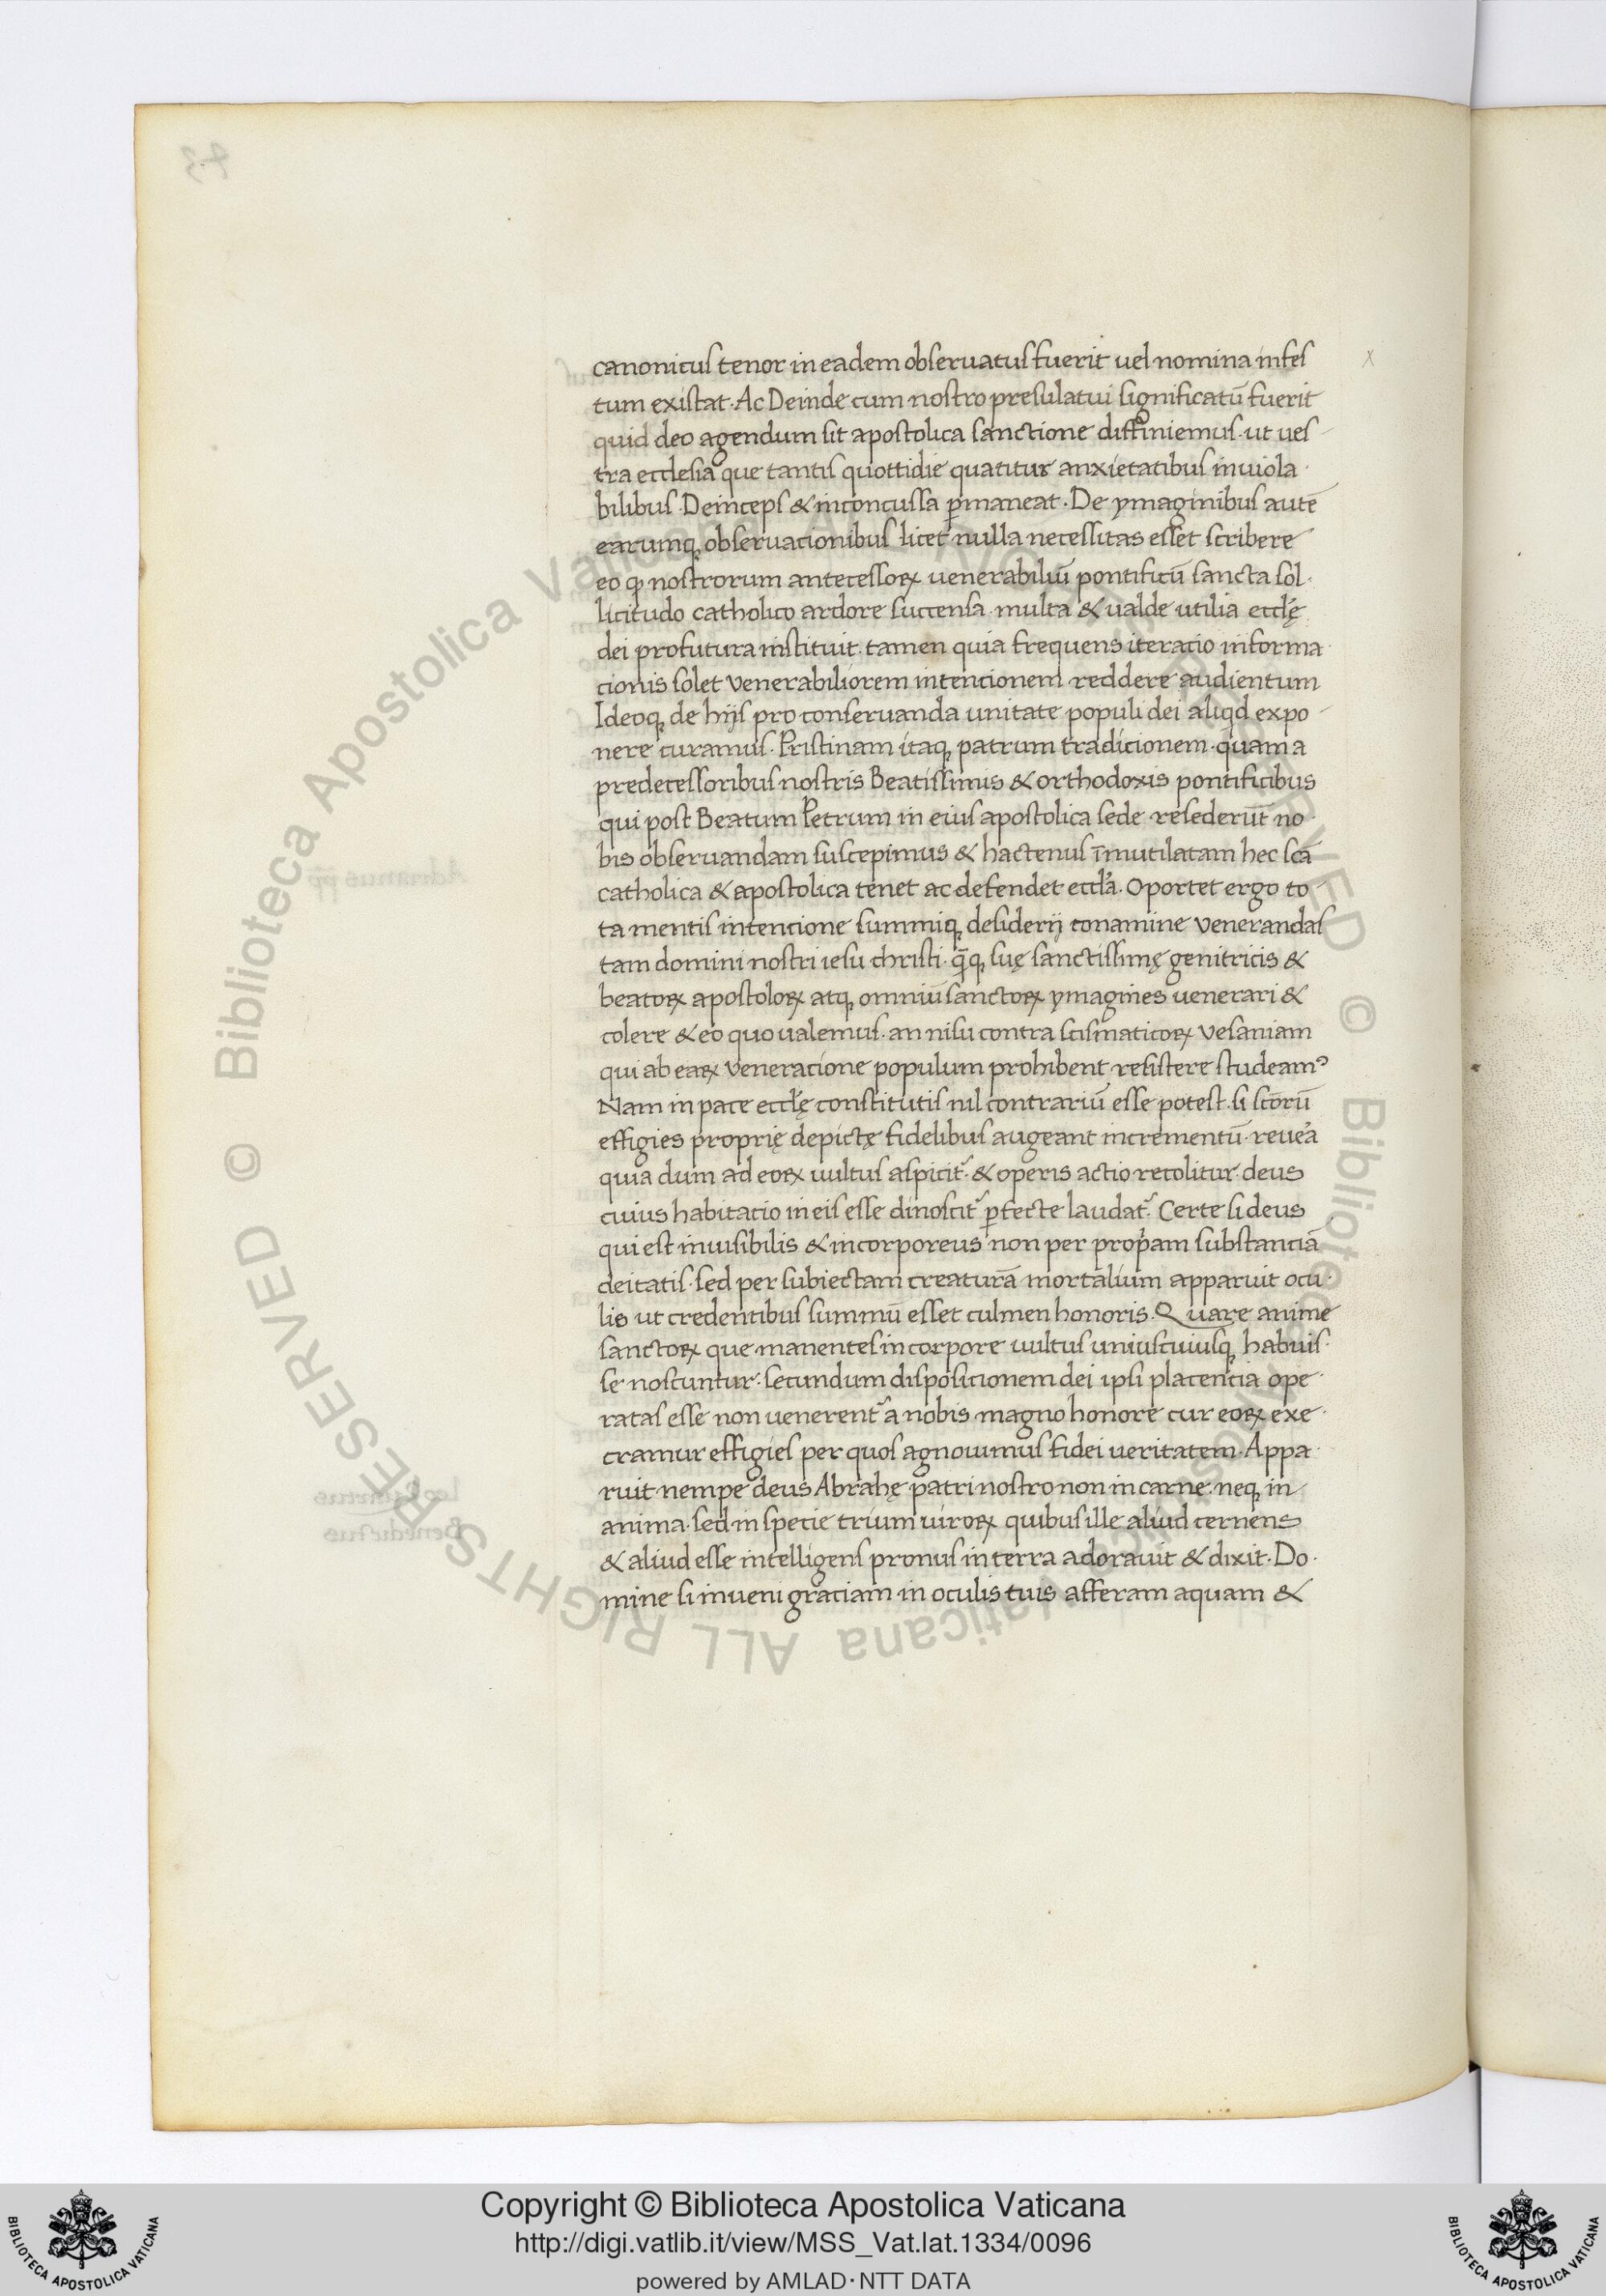 canonicus tenor in eadem obseruatus fuerit uel nomina infes
tum existat. Ac Deinde cum nostro presulatui significatū fuerit
quid deo agendum sit apostolica sanctione diffiniemus. ut ues-
tra ecclesia que tantis quottidie quatitur anxietatibus inuiola-
bilibus Deinceps & inconcussa ꝑmaneat. De ymaginibus autē
earumq; obseruacionibus licet nulla necessitas esset scribere
eo ꝙ nostrorum antecessoꝝ uenerabiliū pontificū sancta sol-
licitudo catholico ardore succensa. multa & ualde utilia eccl̄ę
dei profutura instituit. tamen quia frequens iteracio informa-
cionis solet venerabiliorem intencionem reddere audientum
Ideoq; de hijs pro conseruanda unitate populi dei aliqd expo-
nere curamus. Pristinam itaq; patrum tradicionem. quam a
predecessoribus nostris Beatissimis & orthodoxis pontificibus
qui post Beatum Petrum in eius apostolica sede resederūt no-
bis obseruandam suscepimus & hactenus īmutilatam hec scā
catholica & apostolica tenet ac defendet eccl̄a. Oportet ergo to-
ta mentis intencione summiq; desiderij conamine venerandas
tam domini nostri iesu christi. q̄q; suę sanctissimę genitricis &
beatoꝝ apostoloꝝ atq; omniū sanctoꝝ ymagines uenerari &
colere & eo quo ualemus. an nisu contra scismaticoꝝ vesaniam
qui ab eaꝝ veneracione populum prohibent resistere studeamꝰ
Nam in pace eccl̄ę constitutis nil contrariū esse potest. si sctorū
effigies proprię depictę fidelibus augeant incrementū. reue᷑a
quia dum ad eoꝝ uultus aspicit᷑. & operis actio recolitur. deus
cuius habitacio in eis esse dinoscit᷑ ꝑfecte laudat᷑. Certe si deus
qui est inuisibilis & incorporeus non per prop̄am substanciā
deitatis. sed per subiectam creaturā mortalium apparuit ocu-
lis ut credentibus summū esset culmen honoris. Quare anime
sanctoꝝ que manentes in corpore uultus uniuscuiusq; habuis-
se noscuntur. secundum disposicionem dei ipsi placencia ope-
ratas esse non uenerent᷑ a nobis magno honore cur eoꝝ exe-
cramur effigies per quos agnouimus fidei ueritatem. Appa-
ruit nempe deus Abrahę patri nostro non in carne. neq; in
anima. sed in specie trium uiroꝝ quibus ille aliud cernens
& aliud esse intelligens pronus in terra adorauit & dixit. Do-
mine si inueni graciam in oculis tuis afferam aquam &
Copyright © Biblioteca Apostolica Vaticana
http://digi.vatlib.it/view/MSS_Vat.lat.1334/0096
powered by AMLAD·NTT DATA
BIBLIOTECA APOSTOLICA VATICANA
BIBLIOTECA APOSTOLICA VATICANA
© Biblioteca Apostolica Vaticana ALL RIGHTS RESERVED © Biblioteca Apostolica Vaticana ALL RIGHTS RESERVED